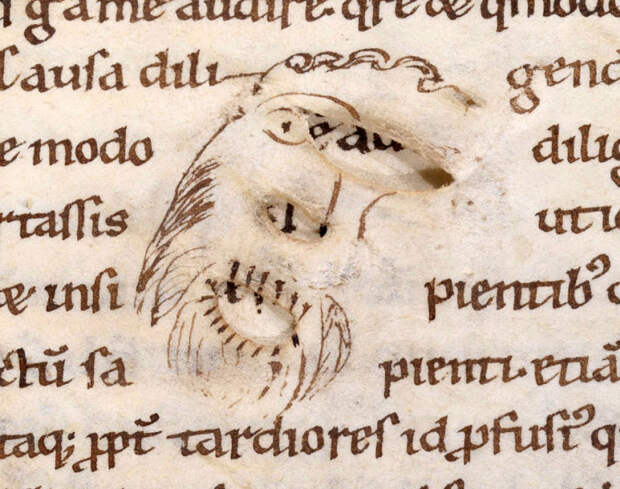 g a me audire. qre & qmodo
Causa dili gend
e modo au dilig
rtassis uti
& insi pientibꝰ
ctū sa pienti. etiā
taq; ꝓpt̄ tardiores id ꝓfusiꝰ q